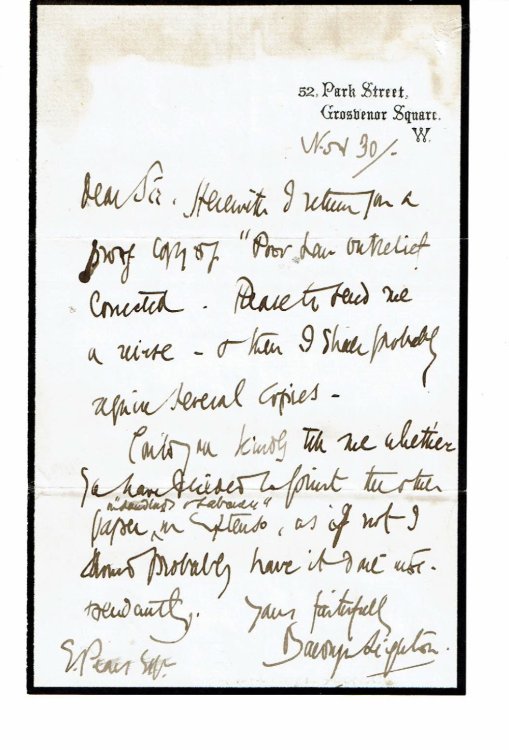 52, Park Street,
Grosvenor Square.
W.
Nov 30/.
Dear Sir. Herewith I return you a
proof copy of "Poor Law outrelief
Corrected. Please to send me
a revise - & then I shall probably
require several copies -
Could you kindly tell me whether
you have decided to print the other
paper, in Extenso, as if not I
should probably have it done
Yours faithfully
Baldwyn Leighton.
E Pears Esqr.